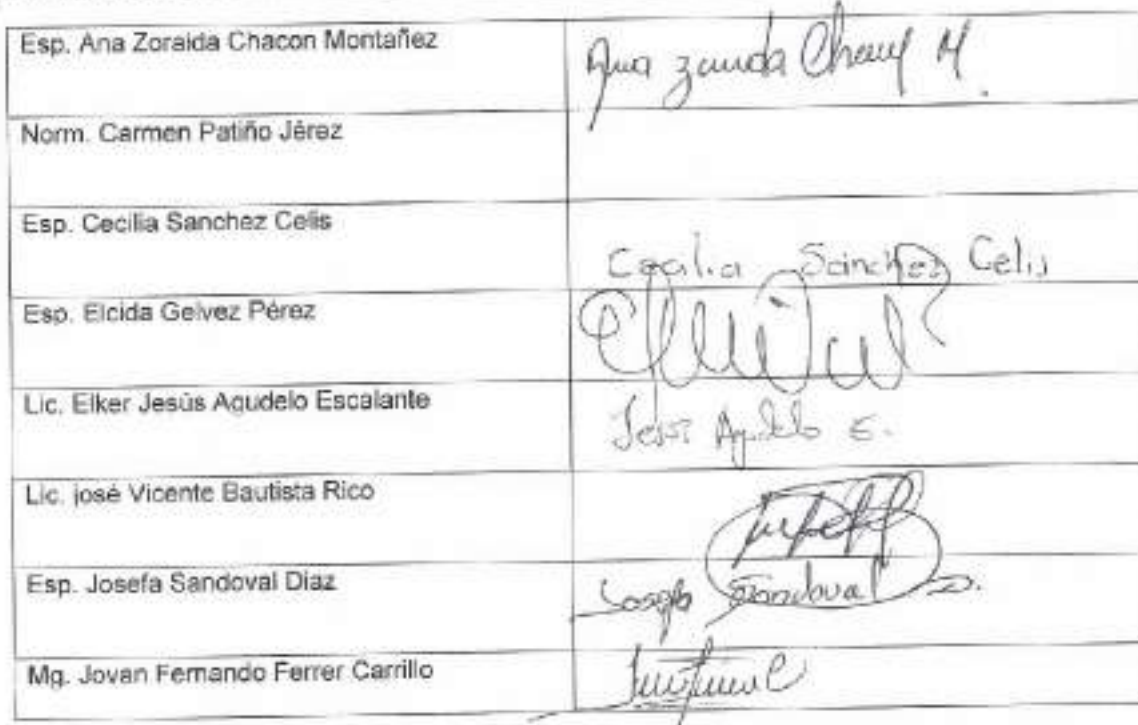 Esp. Ana Zoraida Chacon Montañez
Ana Chacon M.
Norm. Carmen Patiño Jérez
Esp. Cecilia Sanchez Celis
Cecilia Sánchez Celis
Esp. Elcida Gelvez Pérez
Lic. Elker Jesús Agudelo Escalante
Jesús Agudelo E.
Lic. josé Vicente Bautista Rico
Esp. Josefa Sandoval Diaz
Josefa Sandoval D.
Mg. Jovan Fernando Ferrer Carrillo